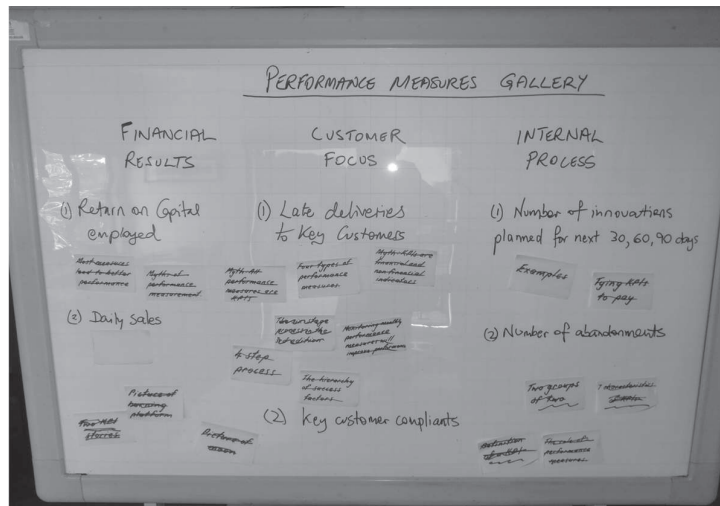 PERFORMANCE MEASURES GALLERY
FINANCIAL
RESULTS
(1) Return on Capital
employed
Most measures
lead to better
performance
Myth of
performance
measurement
(2) Daily sales
Picture of
platform
Picture of
moon
CUSTOMER
FOCUS
(1) Late deliveries
to Key Customers
performance
measures are
KPIs
Four types of
performance
measures
financial and
non financial
indicators
performance
measures will
step
process
The hierarchy
of success
factors
(2) Key customer compliants
INTERNAL
PROCESS
(1) Number of innovations
planned for next 30, 60, 90 days
Examples
Tying KPIs
to pay
(2) Number of abandonments
Two groups
of two
performance
measures